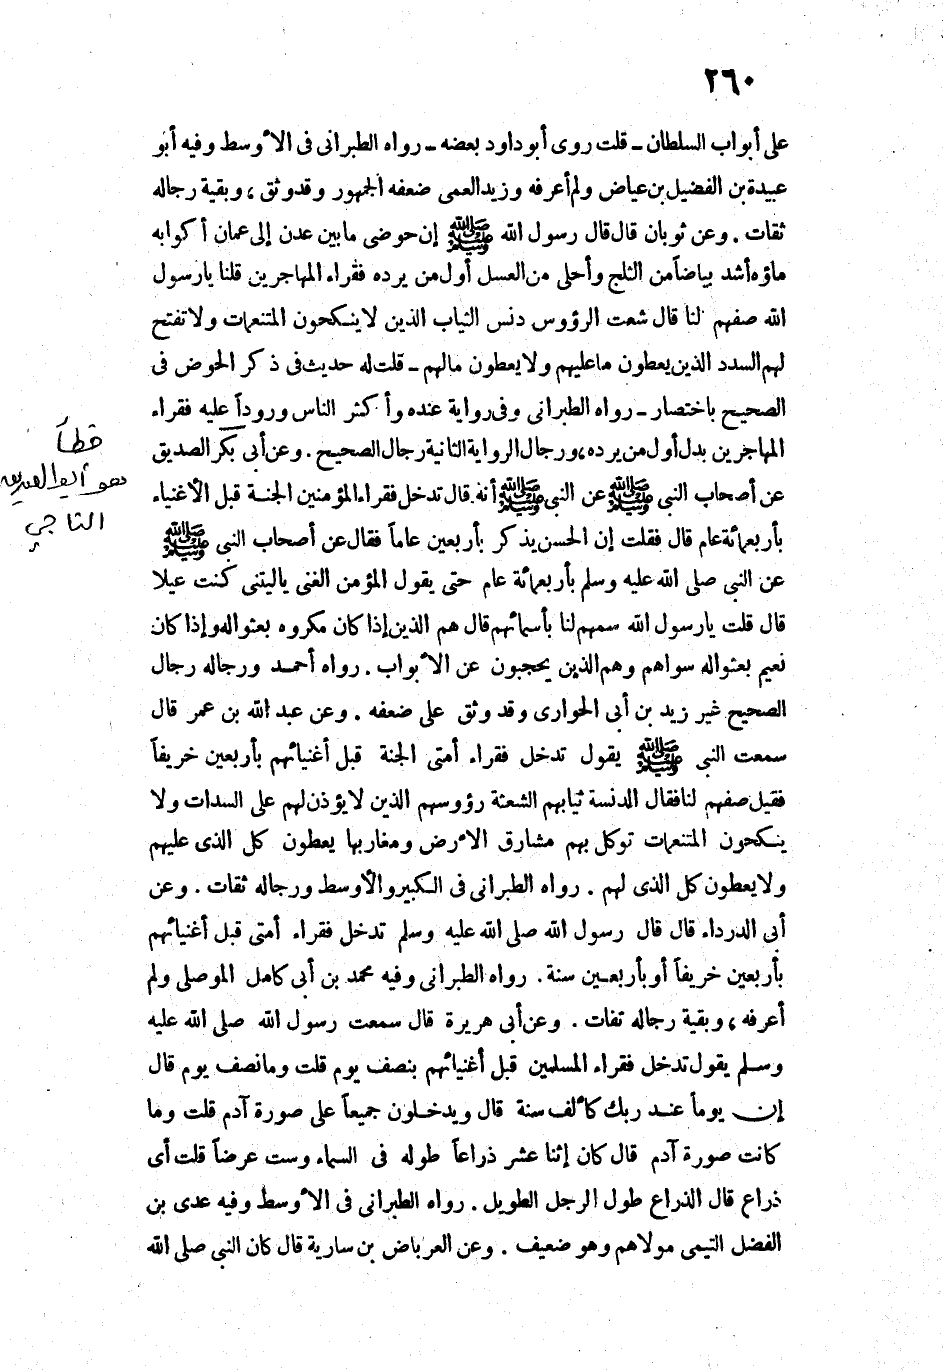 ٢٦٠
على أبواب السلطان ـ قلت روى أبو داود بعضه ـ رواه الطبرانى فى الأوسط وفيه أبو
عبيدة بن الفضيل بن عياض ولم أعرفه وزيد العمى ضعفه الجمهور وقد وثق ، وبقية رجاله
ثقات . وعن ثوبان قال قال رسول الله ﷺ إن حوضى ما بين عدن إلى عمان أكوابه
ماؤه أشد بياضاً من الثلج وأحلى من العسل أول من يرده فقراء المهاجرين قلنا يا رسول
الله صفهم لنا قال شعث الرؤوس دنس الثياب الذين لا ينكحون المتنعمات ولا تفتح
لهم السدد الذين يعطون ما عليهم ولا يعطون مالهم ـ قلت له حديث فى ذكر الحوض فى
الصحيح باختصار ـ رواه الطبرانى وفى رواية عنده وأكثر الناس وروداً عليه فقراء
المهاجرين بدل أول من يرده ، ورجال الرواية الثانية رجال الصحيح . وعن أبى بكر الصديق
عن أصحاب النبى ﷺ عن النبى ﷺ أنه قال تدخل فقراء المؤمنين الجنة قبل الأغنياء
بأربعمائة عام قال فقلت إن الحسن يذكر بأربعين عاماً فقال عن أصحاب النبى ﷺ
عن النبى صلى الله عليه وسلم بأربعمائة عام حتى يقول المؤمن الغنى ياليتنى كنت عيلا
قال قلت يا رسول الله سمهم لنا بأسمائهم قال هم الذين إذا كان مكروه بعثوا له وإذا كان
نعيم بعثوا له سواهم وهم الذين يحجبون عن الأبواب . رواه أحمد ورجاله رجال
الصحيح غير زيد بن أبى الحوارى وقد وثق على ضعفه . وعن عبد الله بن عمر قال
سمعت النبى ﷺ يقول تدخل فقراء أمتى الجنة قبل أغنيائهم بأربعين خريفاً
فقيل صفهم لنا فقال الدنسة ثيابهم الشعثة رؤوسهم الذين لا يؤذن لهم على السدات ولا
ينكحون المتنعمات توكل بهم مشارق الأرض ومغاربها يعطون كل الذى عليهم
ولا يعطون كل الذى لهم . رواه الطبرانى فى الكبير والأوسط ورجاله ثقات . وعن
أبى الدرداء قال قال رسول الله صلى الله عليه وسلم تدخل فقراء أمتى قبل أغنيائهم
بأربعين خريفاً أو بأربعين سنة . رواه الطبرانى وفيه محمد بن أبى كامل الموصلى ولم
أعرفه ، وبقية رجاله ثقات . وعن أبى هريرة قال سمعت رسول الله صلى الله عليه
وسلم يقول تدخل فقراء المسلمين قبل أغنيائهم بنصف يوم قلت وما نصف يوم قال
إن يوماً عند ربك كألف سنة قال ويدخلون جميعاً على صورة آدم قلت وما
كانت صورة آدم قال كان إثنا عشر ذراعاً طوله فى السماء وست عرضاً قلت أى
ذراع قال الذراع طول الرجل الطويل . رواه الطبرانى فى الأوسط وفيه عدى بن
الفضل التيمى مولاهم وهو ضعيف . وعن العرباض بن سارية قال كان النبى صلى الله
خطأ
هو أبو الصديق
الناجي